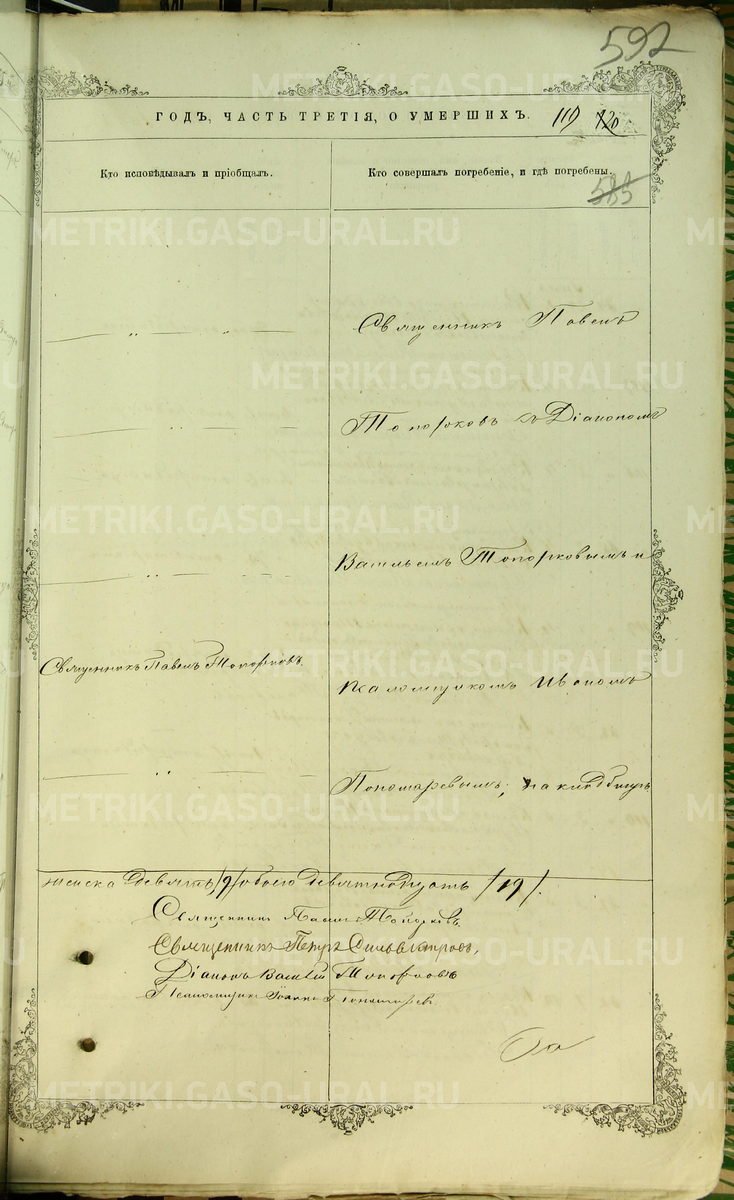 592
ГОДЪ, ЧАСТЬ ТРЕТІЯ, О УМЕРШИХЪ. 119 120
Кто исповѣдывалъ и пріобщалъ.
Кто совершалъ погребеніе, и гдѣ погребены.
585
Священникъ Павелъ
Топорковъ съ Діакономъ
Васильемъ Топорковымъ и
Священникъ Павелъ Топорковъ.
Псаломщикомъ Иваномъ
Пономаревымъ; на кладбищѣ
женска девять /9/ обоего девятнадцать /19/.
Священникъ Павелъ Топорковъ.
Священникъ Петръ Сильвестровъ,
Діаконъ Василій Топорковъ
Псаломщикъ Іоаннъ Пономаревъ.
METRIKI.GASO-URAL.RU